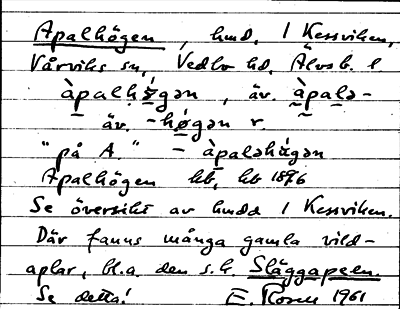 Apalhögen, hmd. I Kessviken,
Vårviks sn, Vedbo hd, Älvsb. l
àpalhö́gən, äv. àpalə-
äv. -hø̀gən r.
"på A." – àpaləhö́gən
Apalhögen hb, hb 1896
Se översikt av hmdd I Kessviken.
Där fanns många gamla vild-
aplar, bl.a. den s.k. Släggapeln.
Se detta! E. Rosell 1961